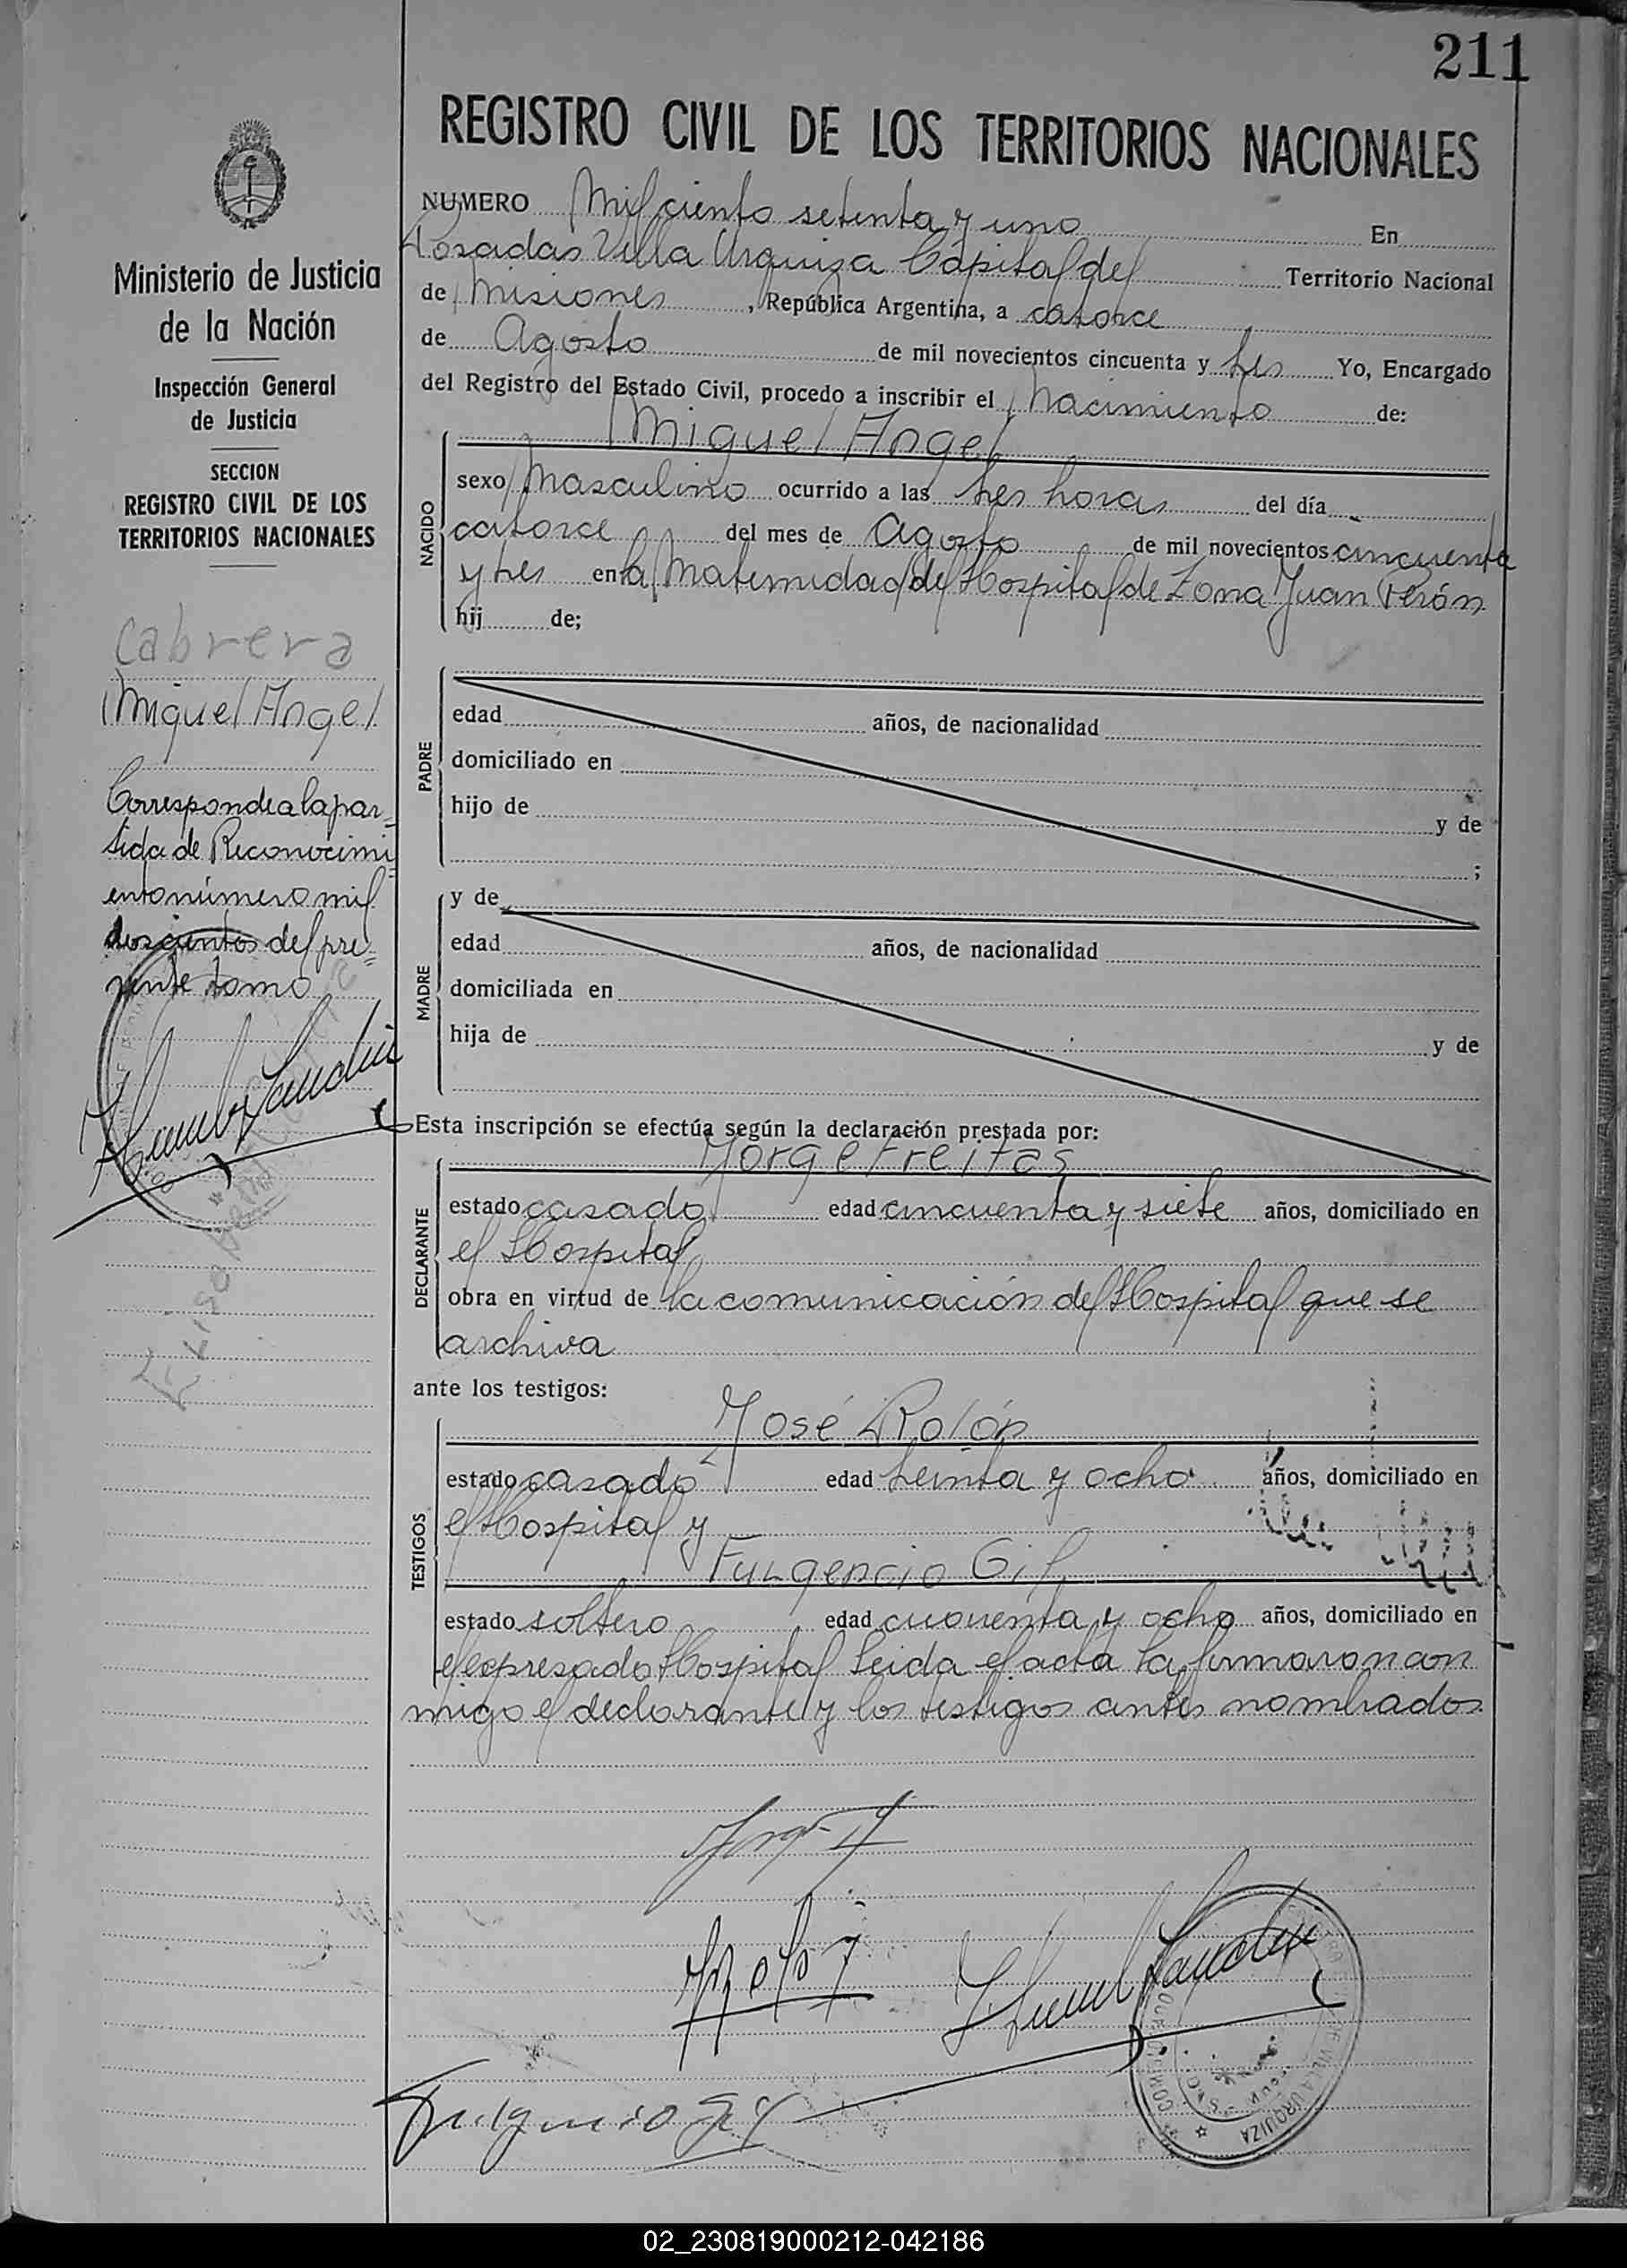 211
REGISTRO CIVIL DE LOS TERRITORIOS NACIONALES
Ministerio de Justicia
de la Nación
Inspección General
de Justicia
SECCION
REGISTRO CIVIL DE LOS
TERRITORIOS NACIONALES
Cabrera
Miguel Angel
Corresponde a la par=
tida de Reconocimi=
ento número mil
doscientos del pre=
sente tomo
NUMERO Mil ciento setenta y uno En
Posadas Villa Urquiza Capital del Territorio Nacional
de Misiones, República Argentina, a catorce
de Agosto de mil novecientos cincuenta y tres Yo, Encargado
del Registro del Estado Civil, procedo a inscribir el Nacimiento de:
Miguel Angel
NACIDO
sexo Masculino ocurrido a las tres horas del día
catorce del mes de Agosto de mil novecientos cincuenta
y tres en la Maternidad del Hospital de Zona Juan Perón
hij de;
PADRE
edad años, de nacionalidad
domiciliado en
hijo de y de
;
MADRE
y de
edad años, de nacionalidad
domiciliada en
hija de y de
Esta inscripción se efectúa según la declaración prestada por:
Jorge Freitas
DECLARANTE
estado casado edad cincuenta y siete años, domiciliado en
el Hospital
obra en virtud de la comunicación del Hospital que se
archiva
ante los testigos:
José Rolón
TESTIGOS
estado casado edad treinta y ocho años, domiciliado en
el Hospital y
Fulgencio Gil
estado soltero edad cuarenta y ocho años, domiciliado en
el expresado Hospital Leida el acta la firmaron con
migo el declarante y los testigos antes nombrados.
Fulgencio Gil
VILLA URQUIZA
02_230819000212-042186